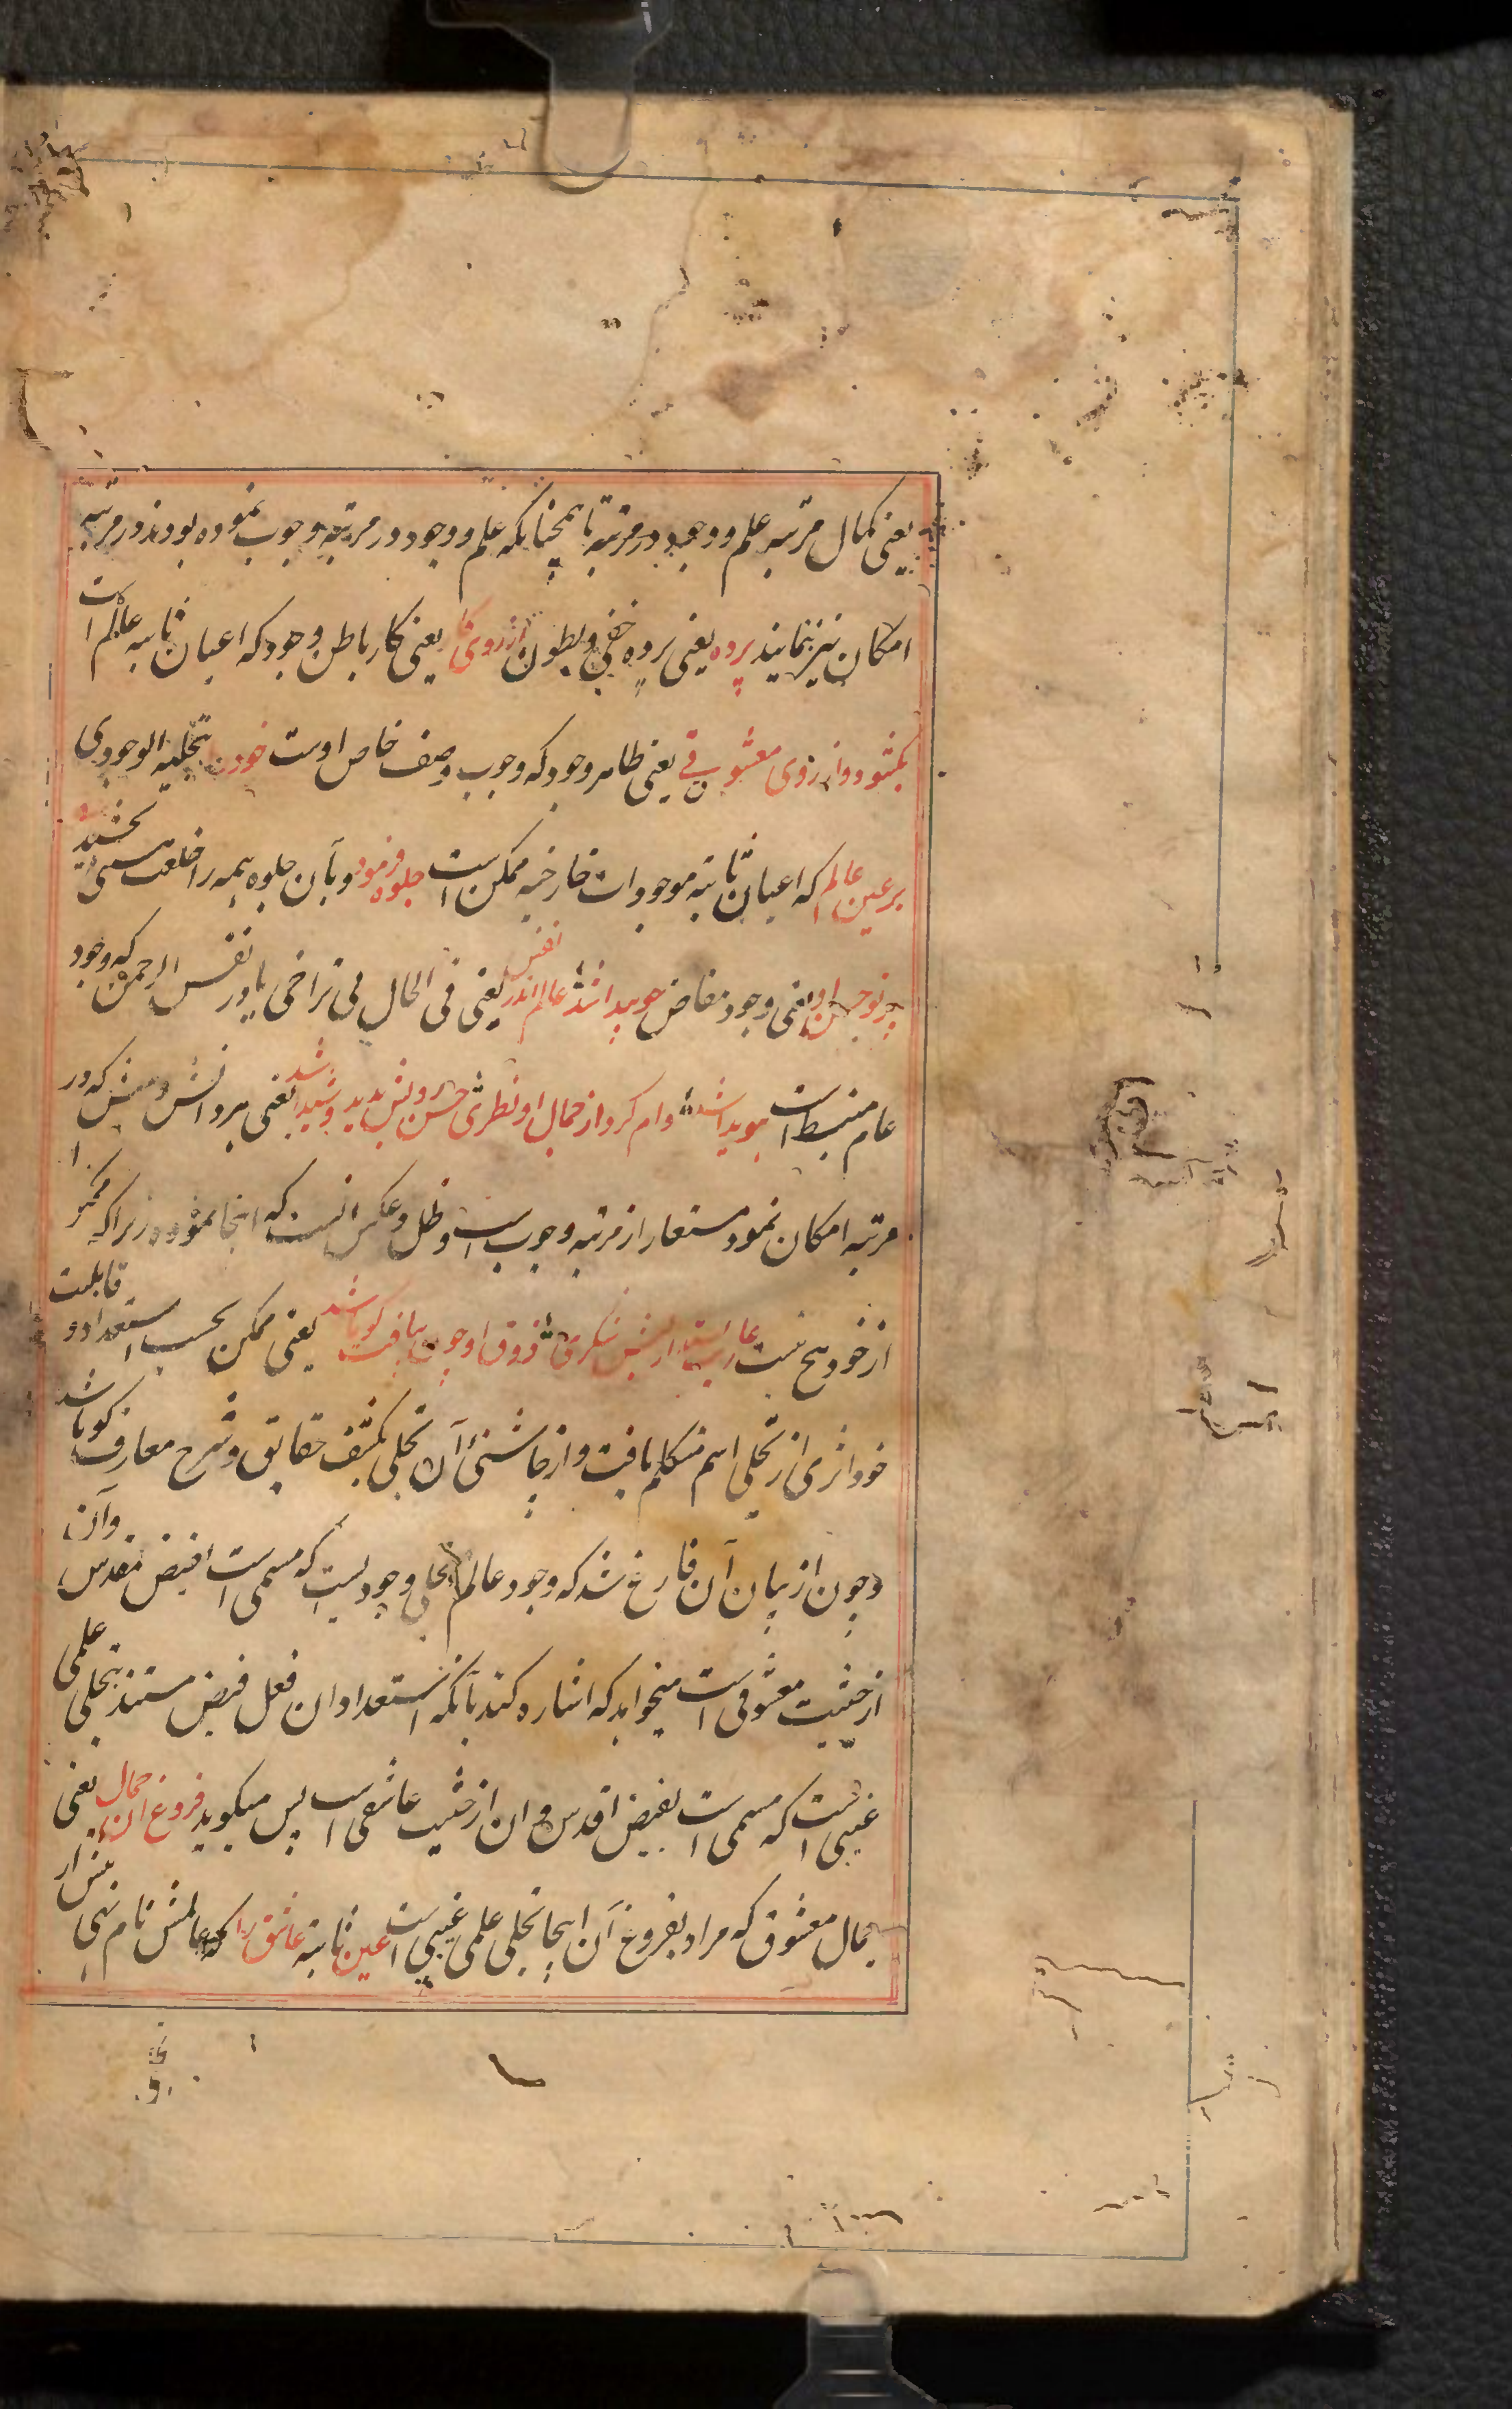 یعنی کمال مرتبه علم و وجود در مرتبه تا همچنانکه علم و وجود در مرتبه وجوب نموده بودند در مرتبه
امکان نیز نمایند پرده یعنی پرده خفی و بطون از روی کار یعنی کار باطن وجود که اعیان ثابته عالم است
بکشود و از روی معشوقی یعنی ظاهر وجود که وجوب وصف خاص اوست خود را بتجلیه الوجودی
بر عین عالم که اعیان ثابته موجودات خارجیه ممکن است جلوه فرمود و بآن جلوه همه را خلعت هستی بخشید
پرتو حسن او یعنی وجود مفاض چو پیدا شد عالم اندر نفس یعنی فی الحال بی تراخی یا در نفس الرحمن که وجود
عام منبسط است هویدا شد وام کرد از جمال او نظری حسن رویش بدید و شیدا شد یعنی هر دانش و بینش که در
مرتبه امکان نمود مستعار از مرتبه وجوب است و ظل و عکس آنست که اینجا نموده زیرا که ممکن را
از خود هیچ نیست عاریت بستد از لبش شکری ذوق او چون بیافت گویا شد یعنی ممکن بحسب استعداد و قابلیت
خود اثری از تجلی اسم متکلم یافت و از چاشنی آن تجلی بکشف حقایق و شرح معارف گویا شد
و چون از بیان آن فارغ شد که وجود عالم بتجلی وجودیست که مسمی است بفیض مقدس و آن
از حیثیت معشوقی است میخواهد که اشاره کند بآنکه استعداد ان فعل فیض مستند بتجلی علمی
غیبی است که مسمی است بفیض اقدس و ان از حیثیت عاشقی است پس میگوید فروغ ان جمال یعنی
جمال معشوق که مراد بفروغ آن اینجا تجلی علمی غیبی است عین ثابته عاشق را که عالمش نام نهی پیش از